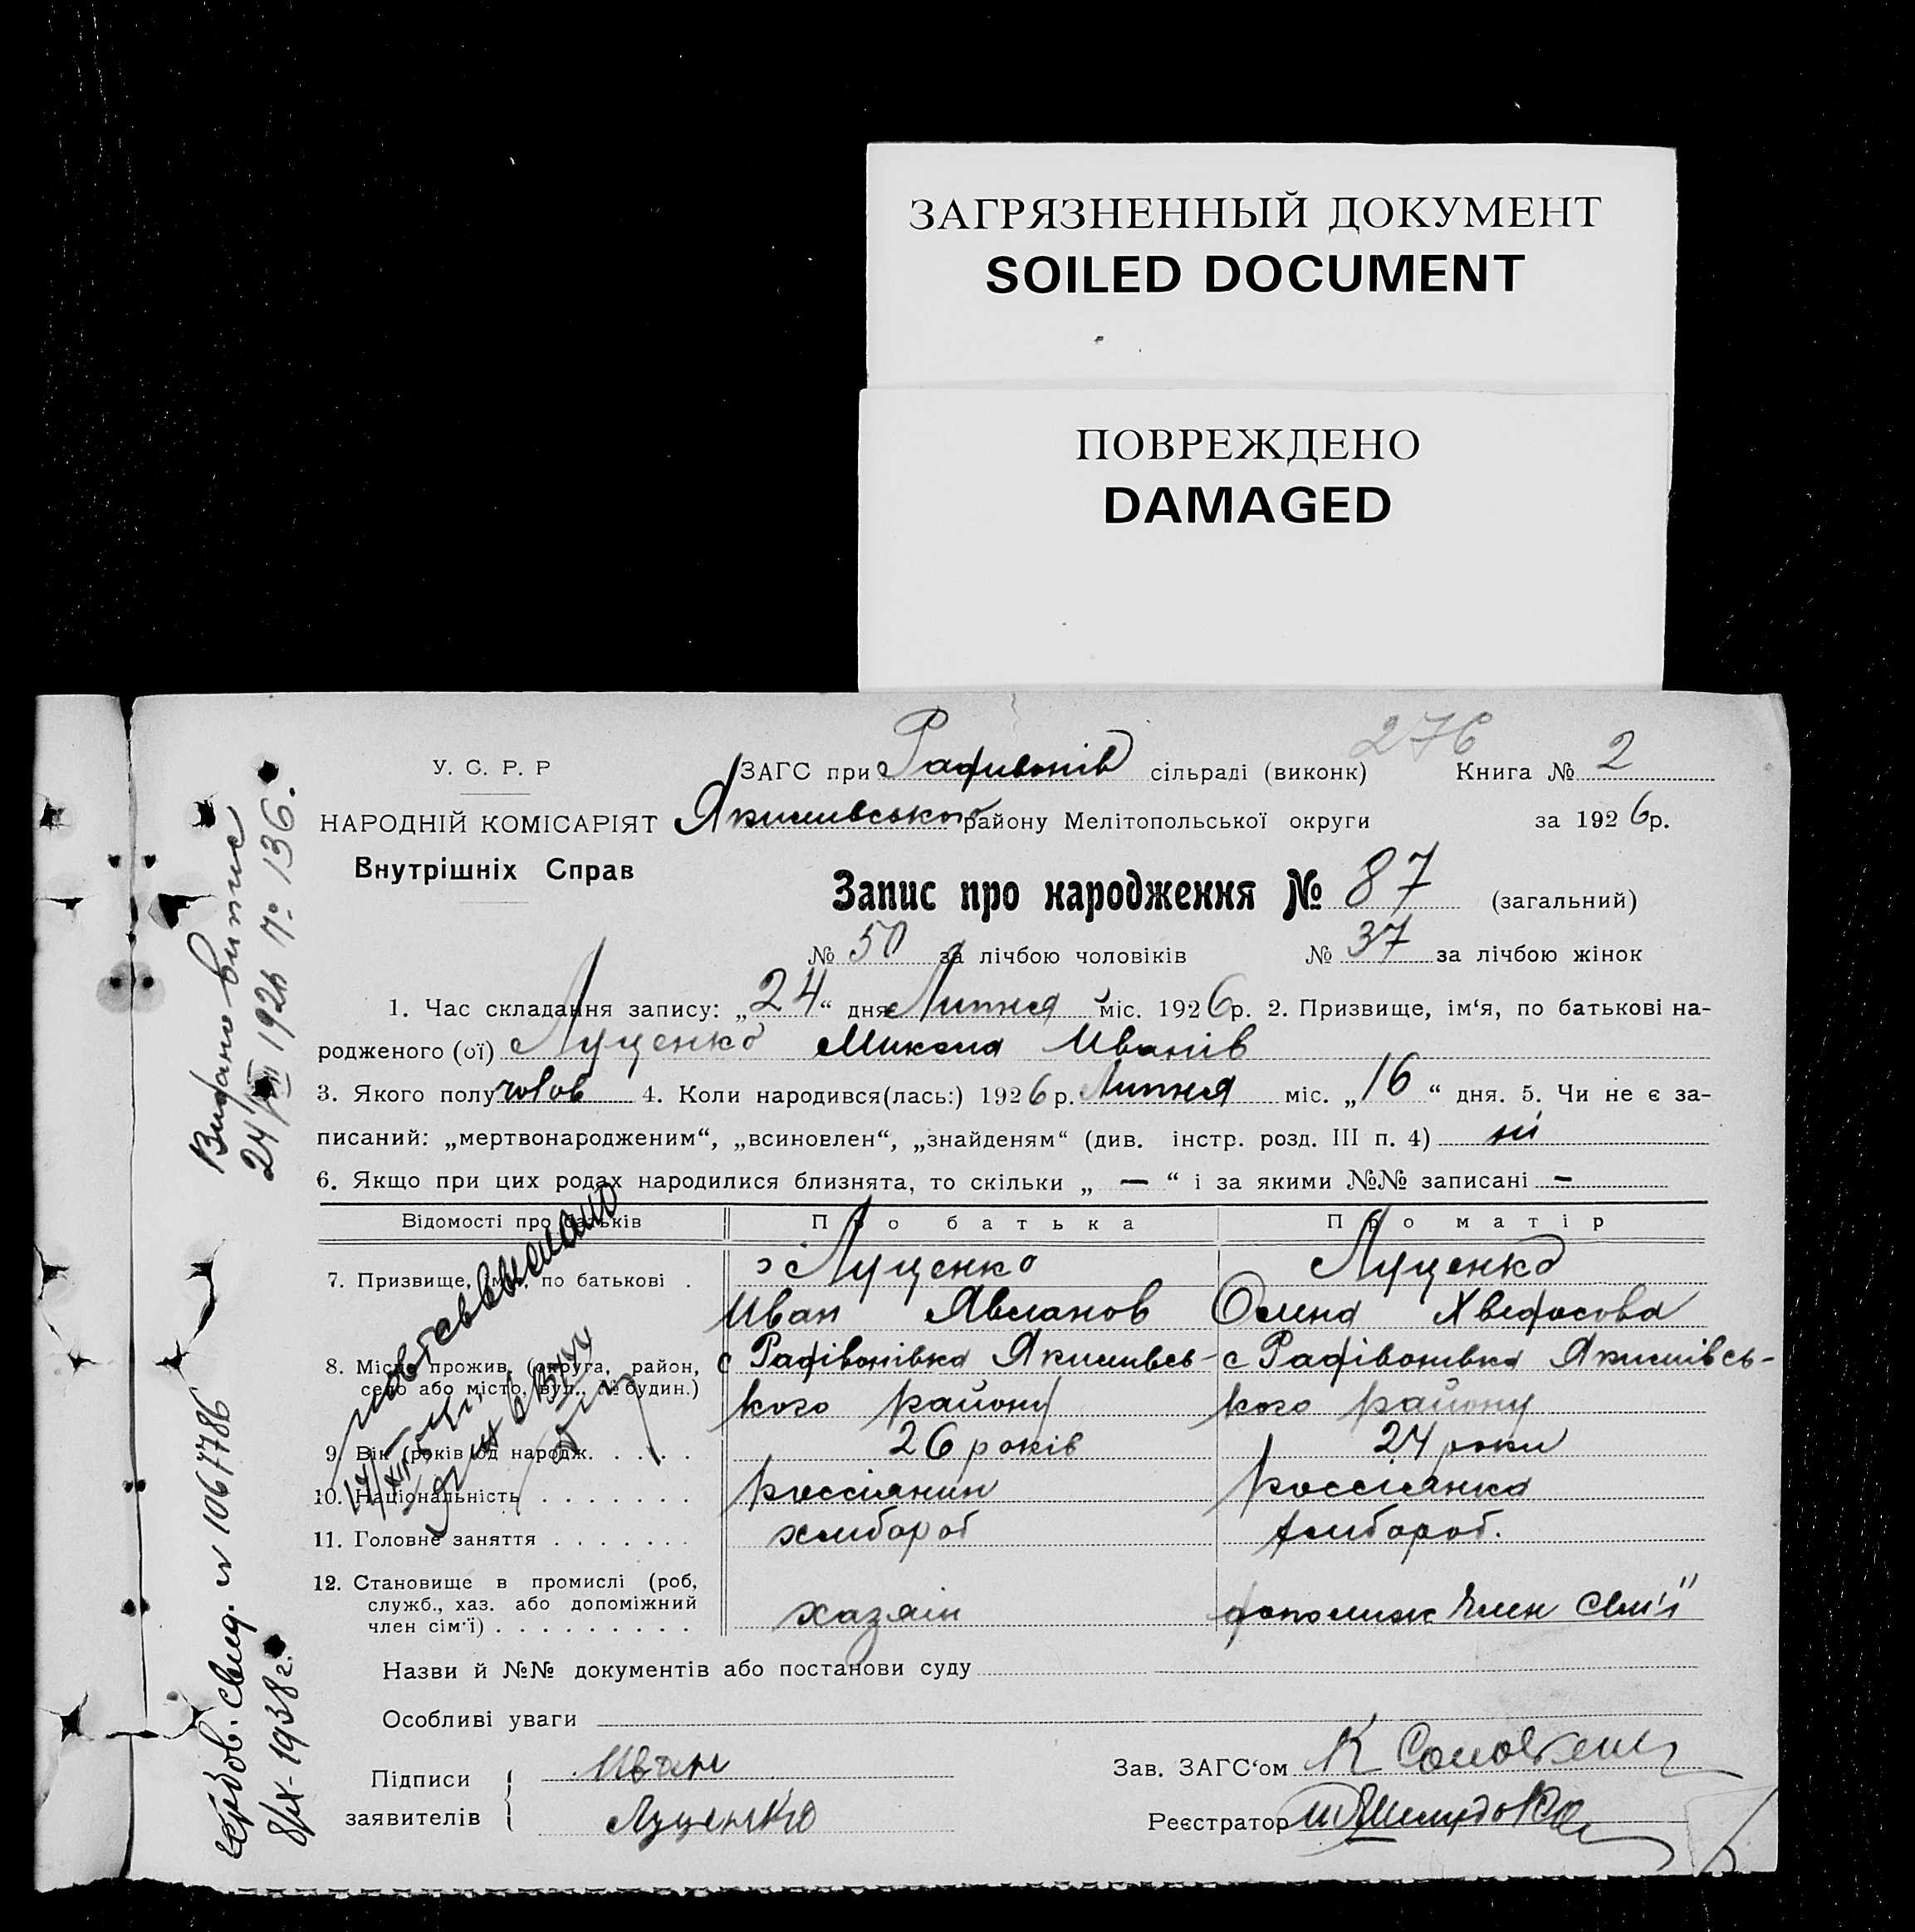 ЗАГРЯЗНЕННЫЙ ДОКУМЕНТ
SOILED DOCUMENT
ПОВРЕЖДЕНО
DAMAGED
276
У. С. Р. Р
ЗАГС при Рафивонів сільраді (виконк) Книга № 2
НАРОДНІЙ КОМІСАРІЯТ Якимивського району Мелітопольської округи за 1926р.
Внутрішніх Справ
Запис про народження № 87 (загальний)
№ 50 за лічбою чоловіків № 37 за лічбою жінок
1. Час складання запису: „24“ дня Липня міс. 1926р. 2. Призвище, ім‘я, по батькові на-
родженого (ої) Луценко Микола Иванів
3. Якого полу чолов 4. Коли народився(лась:) 1926р. Липня міс. „16“ дня. 5. Чи не є за-
писаний: „мертвонародженим“, „всиновлен“, „знайденям“ (див. інстр. розд. III п. 4) ні
6. Якщо при цих родах народилися близнята, то скільки „ — “ і за якими №№ записані —
Відомості про батьків Про батька Про матір
7. Призвище, ім‘я по батькові . Луценко Луценко
Иван Явланов Олена Хведосова
8. Місце прожив. (округа, район, с Рафівонівка Якимивсь- с Рафівонивка Якимівсь-
село або місто, вул., № будин.)
кого району кого району
9. Вік (років од народж. . . . . 26 років 24 роки
10. Національність . . . . . . . россіянин россіянка
11. Головне заняття . . . . . . . хлибороб хлибороб.
12. Становище в промислі (роб,
служб., хаз. або допоміжний
член сім‘ї) . . . . . . . . . хазяін допомижн член семʼі
Назви й №№ документів або постанови суду
Особливі уваги
Підписи Иван
заявителів Луценко
Зав. ЗАГС‘ом К
Реєстратор
Видано випис
24/VII 1926 № 136.
свид. № 1067786
8/IX-1938 г.